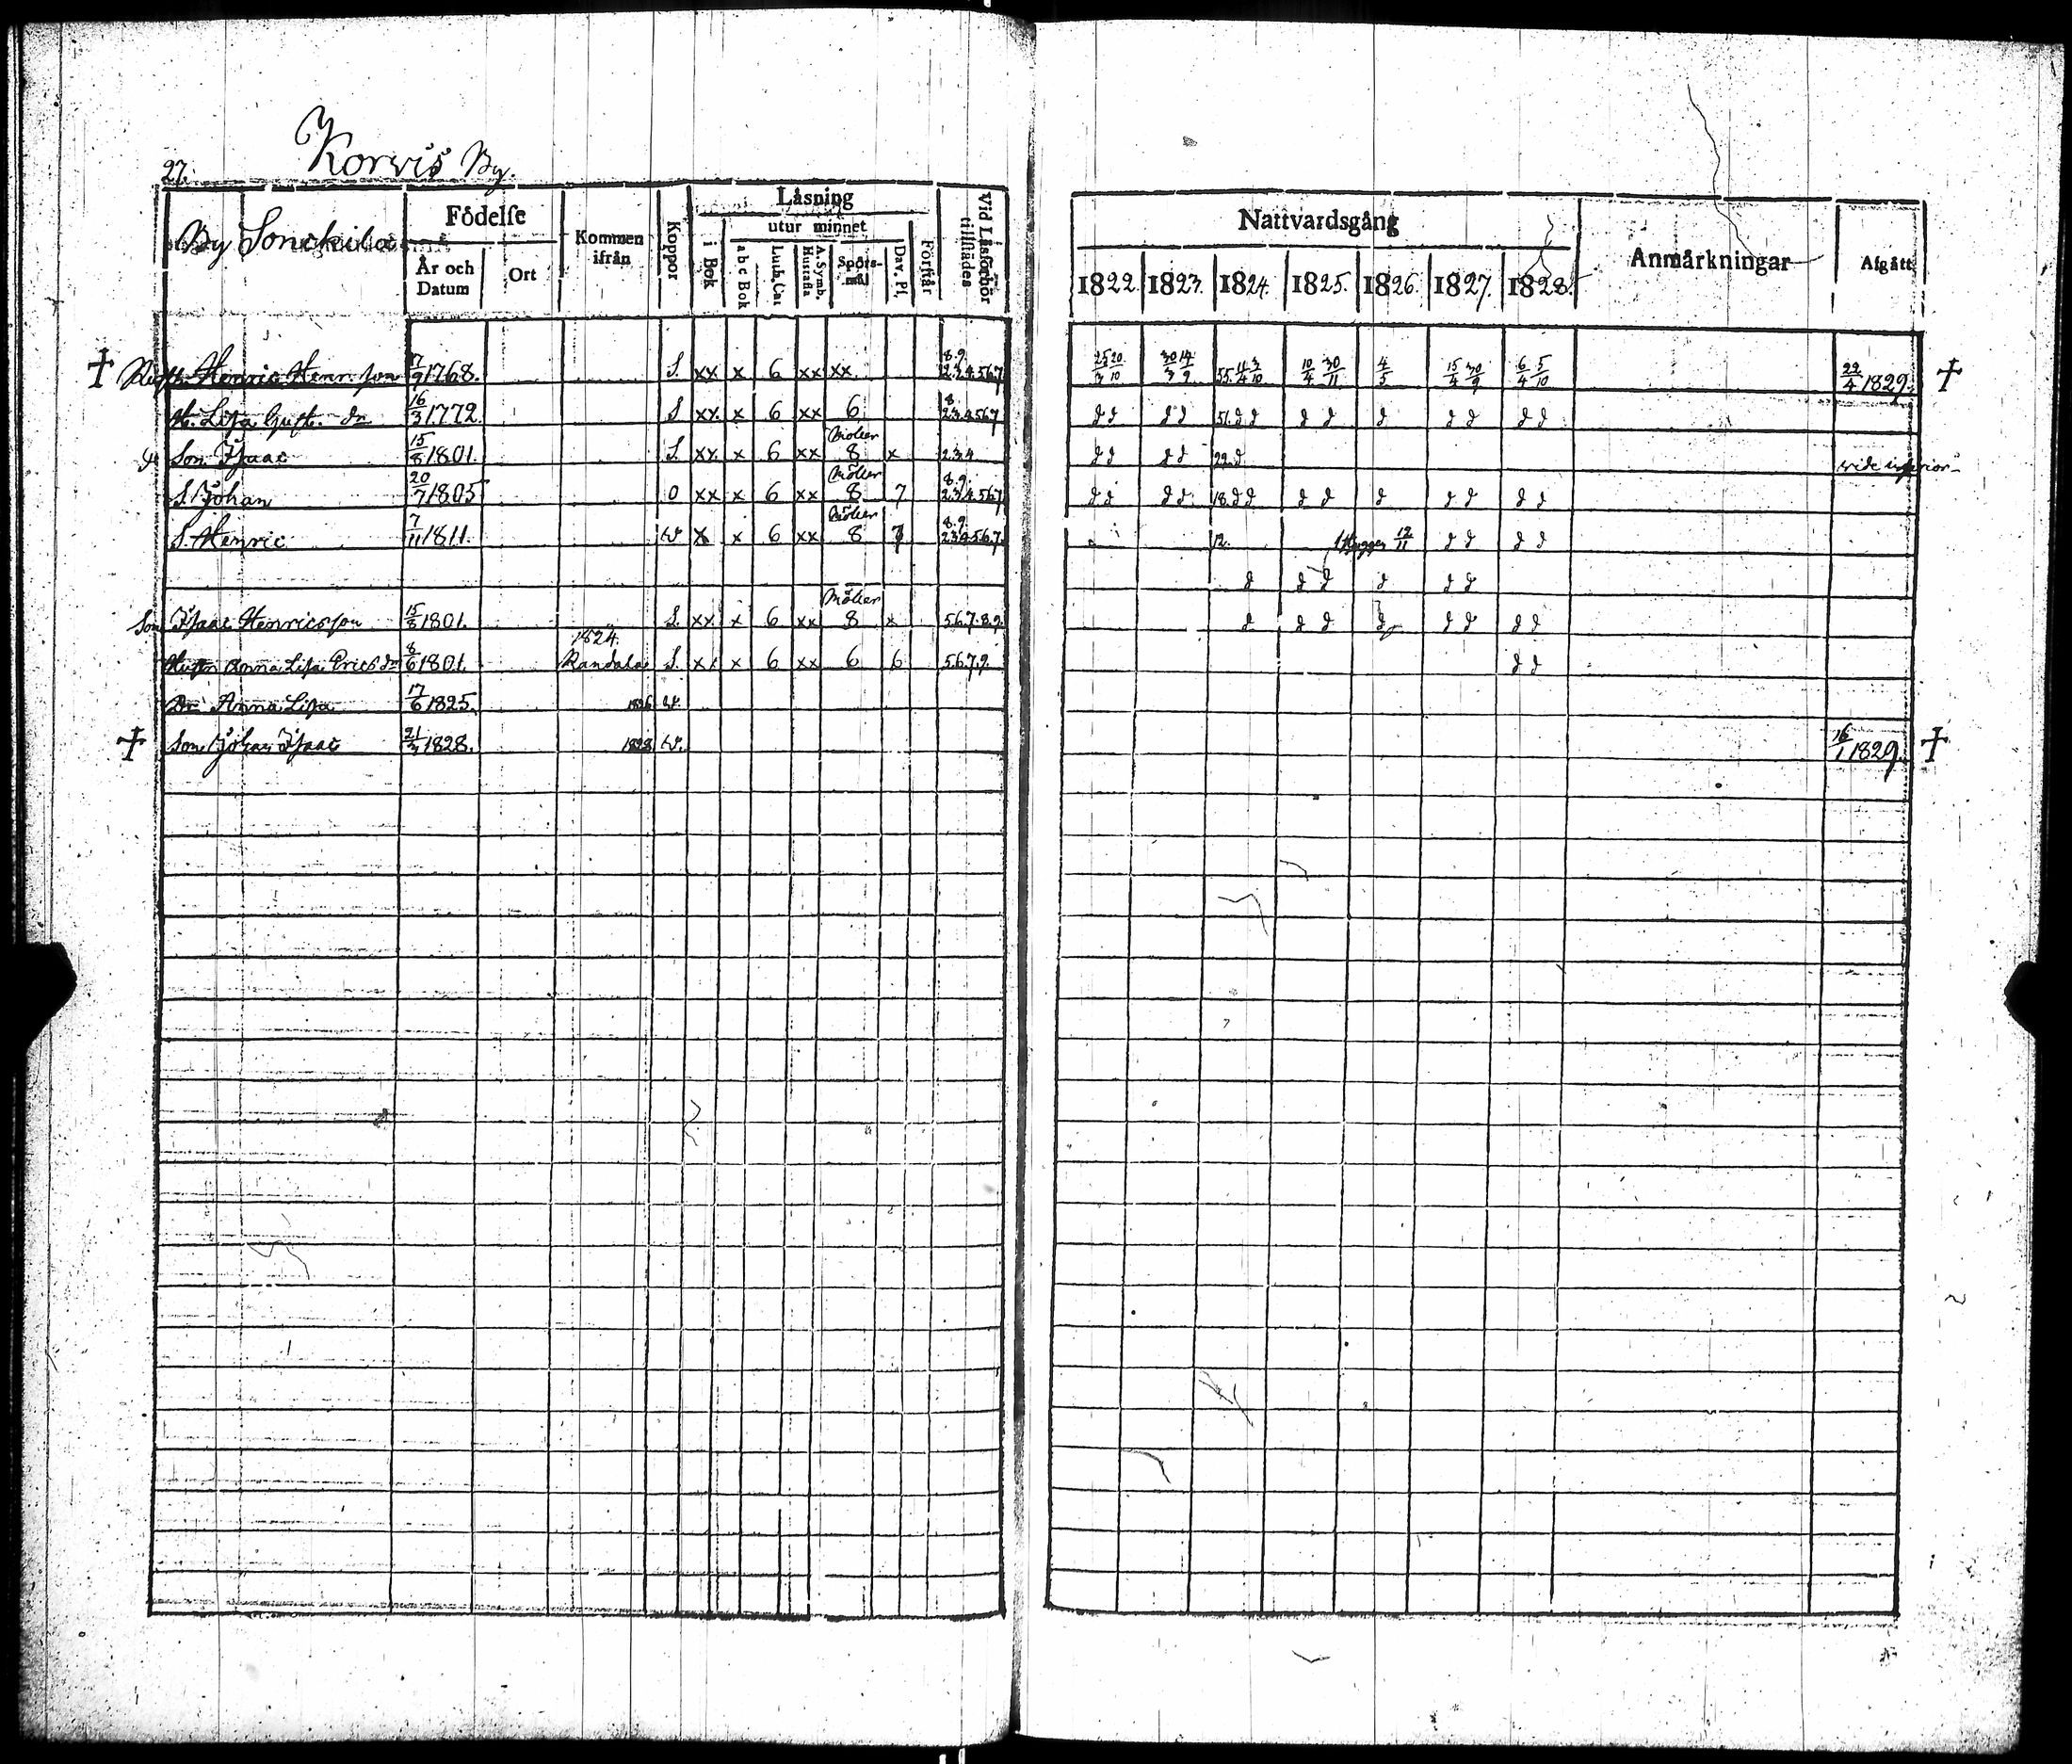 27. Korvis By.
By Sonckila
Födelse
År och Datum
Ort
Kommen ifrån
Koppor
Läsning
i Bok
utur minnet
a b c Bok
Luth. Cat
A. Symb. Hustafla
Spörs-mål
Dav. Pf.
Förstår
Vid Läsförhör tillstädes
Nattvardsgång
1822. 1823. 1824. 1825. 1826. 1827. 1828.
Anmärkningar
Afgått
† Henric Henr. son 7/9 1768. S. xx x 6 xx xx. 8.9. 25/3 20/10 30/3 14/9 55. 11/4 3/10 10/4 30/11 4/5 15/4 30/9 6/4 5/10 22/4 1829. †
H. Lisa Gust. dr 16/3 1772. S xx. x 6 xx 6 8 2.3.4.5.6.7 d d d d 51. d d d d d d d d d
Son Isaac 15/8 1801. S. xx. x 6 xx Möller 8 x 2.3.4 d d d d 22. d vide inferior
S. Johan 20/7 1805 0 xx x 6 xx Möller 8 7 8.9. 2.3.4.5.6.7 d d d d 18. d d d d d d d d d
S. Henric 7/11 1811. W x x 6 xx Möller 8 7 8.9. 2.3.4.5.6.7. 12. 12/11 d d d d
d d d d d d
Son Isaac Henricsson 15/8 1801. S. xx. x 6 xx Möller 8 x 5.6.7.8.9. d d d d d d d d
Anna Lisa Ericsdr 8/6 1801. 1824. Randala S. xx x 6 xx 6 6 5.6.7.9. d d
Dr Anna Lisa 17/6 1825. 1826 W.
† Son Johan Isaac 21/3 1828. 1828 W. 16/1 1829. †